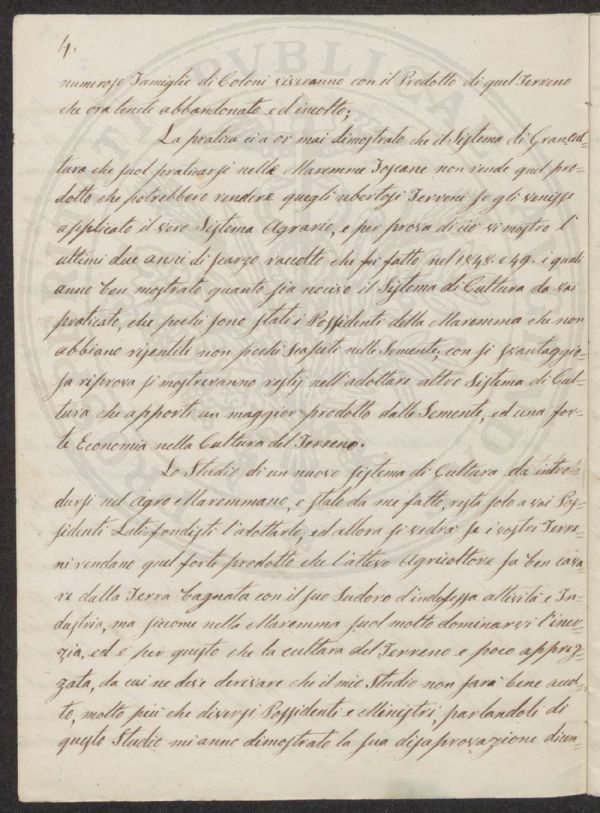 4.
numerose Famiglie di Coloni viveranno con il Prodotto di quel Terreno
che ora tenete abbandonato ed incolto;
La pratica ci a or mai dimostrato che il Sistema di Grancul-
tura che suol praticarsi nelle Maremme Toscane non rende quel pro-
dotto che potrebbero rendere quegli ubertosi Terreni se gli venisse
applicato il vero Sistema Agrario, e per prova di ciò vi mostro l'
ultimi due anni di scarzo raccolto che fu fatto nel 1848. e 49. i quali
anno ben mostrato quanto sia nocivo il Sistema di Cultura da voi
praticato, che pochi sono stati i Possidenti della Maremma che non
abbiano risentiti non pochi scapiti nelle Semente; con si svantaggio-
sa riprova si mostreranno restij nell'adottare altro Sistema di Cul-
tura che apporti un maggior prodotto dalle Semente, ed una for-
te Economia nella Cultura del Terreno.
Lo Studio di un nuovo sistema di Cultura da intro-
dursi nel agro Maremmano, e stato da me fatto, resta solo a voi Pos-
sidenti Latifondisti l'adottarlo, ed allora si vedrà se i vostri Terre-
ni rendano quel forte prodotto che l'attivo Agricoltore sa ben cava-
re dalla Terra bagnata con il suo Sudore d'indefessa attività e In-
dustria, ma siccome nella Maremma suol molto dominarvi l'iner-
zia, ed è per questo che la cultura del Terreno e poco apprez-
zata, da cui ne deve derivare che il mio Studio non sarà bene accol-
to, molto più che diversi Possidenti e Ministri, parlandoli di
questo Studio mi anno dimostrato la sua disaprovazione dicen-